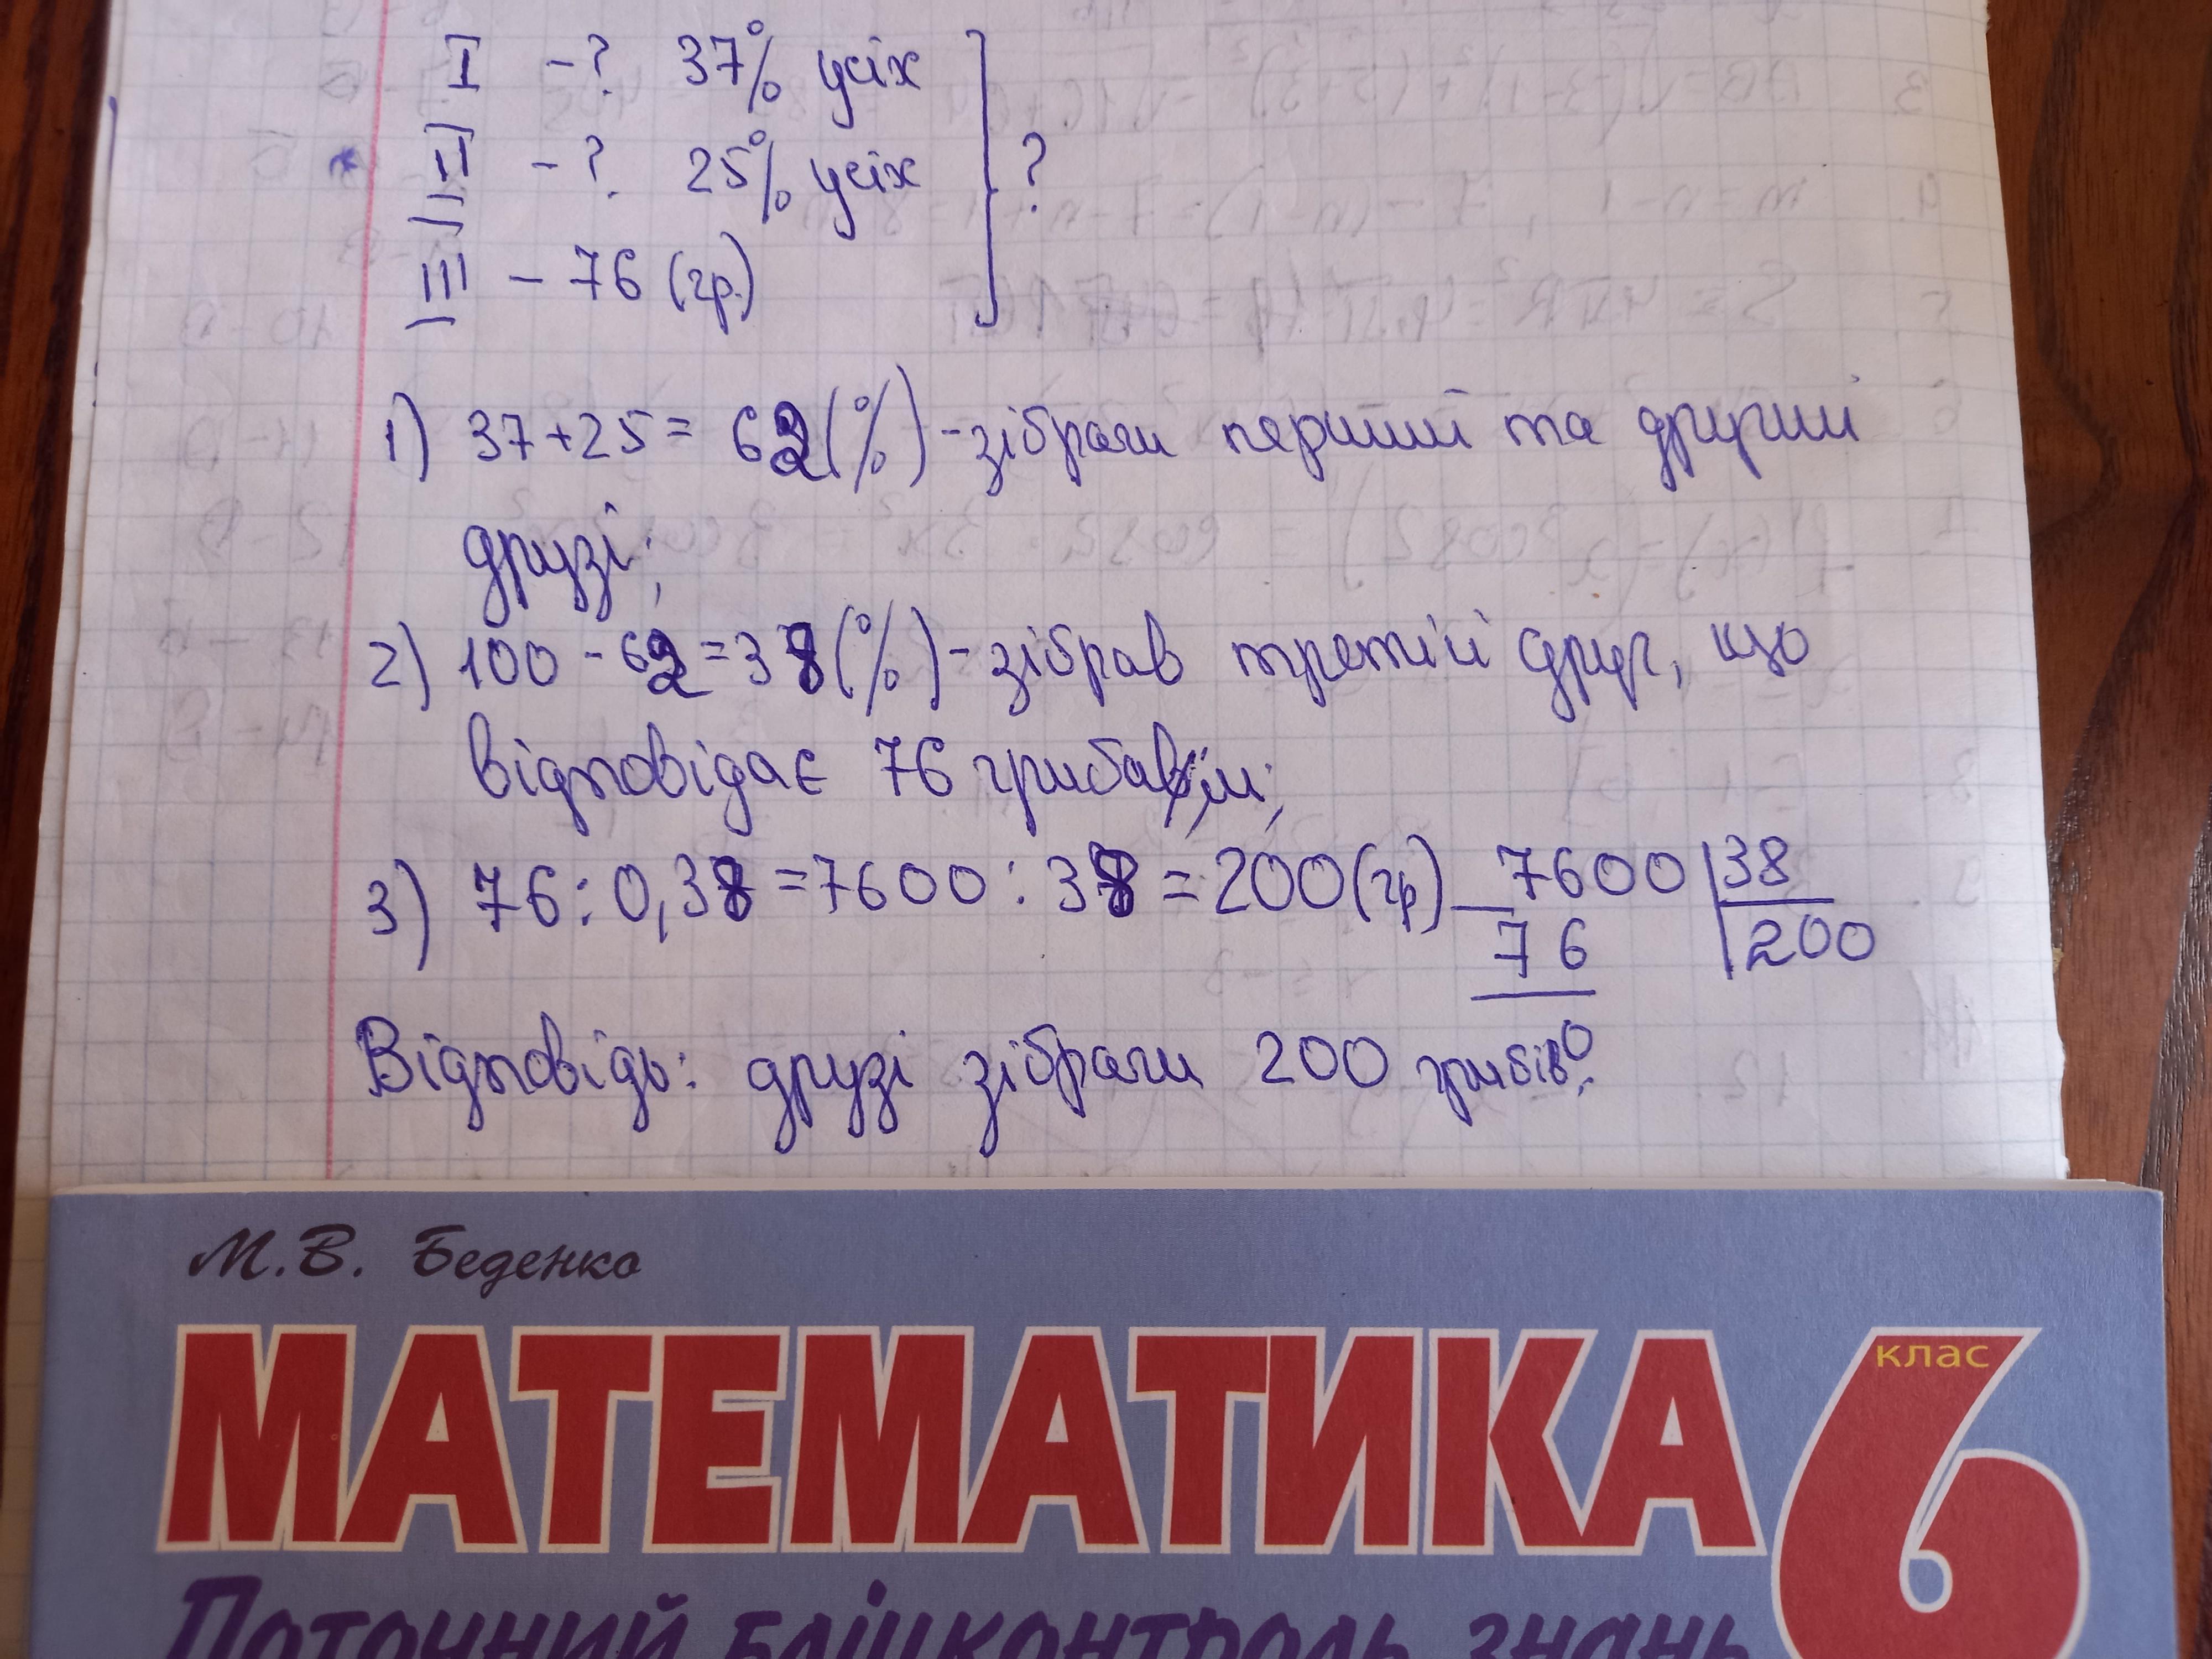 I - ? 37% усіх
II - ? 25% усіх
?
III - 76 (гр.)
1) 37+25= 62(%)-зібрали перший та другий
друзі;
2) 100-62=38(%)-зібрав третій друг, що
відповідає 76 грибам;
3) 76:0,38=7600:38=200(гр)
7600 38
76 200
0
Відповідь: друзі зібрали 200 грибів.
М.В. Беденко
МАТЕМАТИКА 6
клас
Поточний бліцконтроль знань